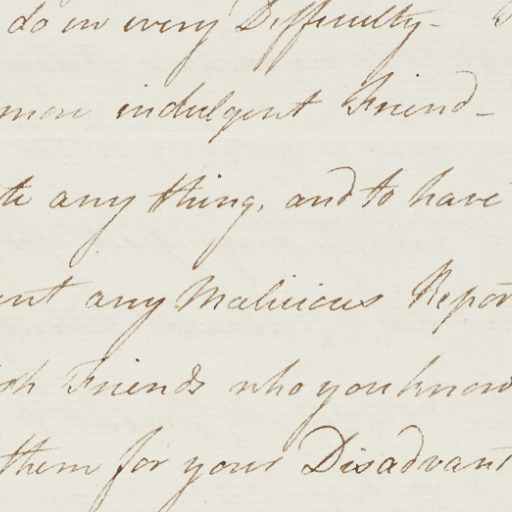 do in every Difficulty -
more indulgent Friend -
te any thing, and to have
ent any Malicious Repor
Friends who you know
them for your Disadvant